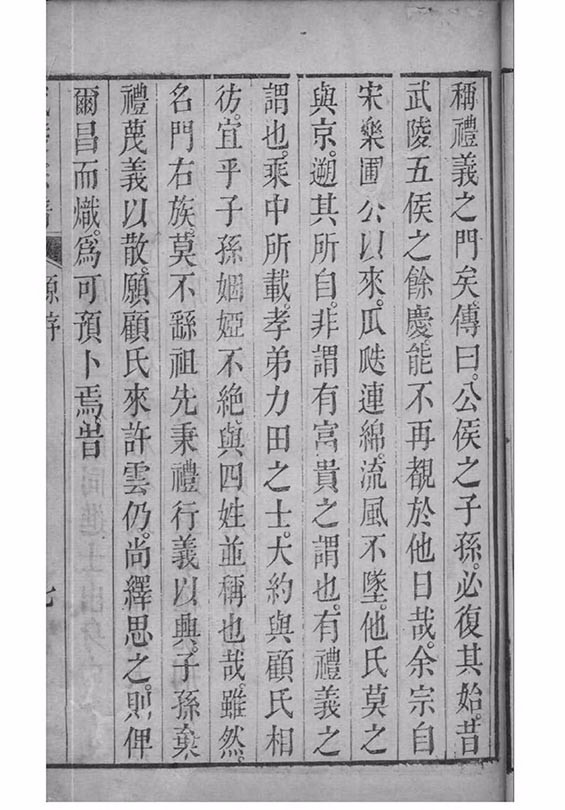 稱禮義之門矣。傳曰。公侯之子孫。必復其始。昔
武陵五侯之餘慶。能不再覩於他日哉。余宗自
宋樂圃公以來。瓜瓞連綿。流風不墜。他氏莫之
與京。遡其所自。非謂有富貴之謂也。有禮義之
謂也。乘中所載。孝弟力田之士。大約與顧氏相
彷。宜乎子孫婣婭不絕。與四姓並稱也哉。雖然。
名門右族。莫不繇祖先秉禮行義以興。子孫棄
禮蔑義以散。願顧氏來許雲仍。尚繹思之。則俾
爾昌而熾。爲可預卜焉。旹
原序